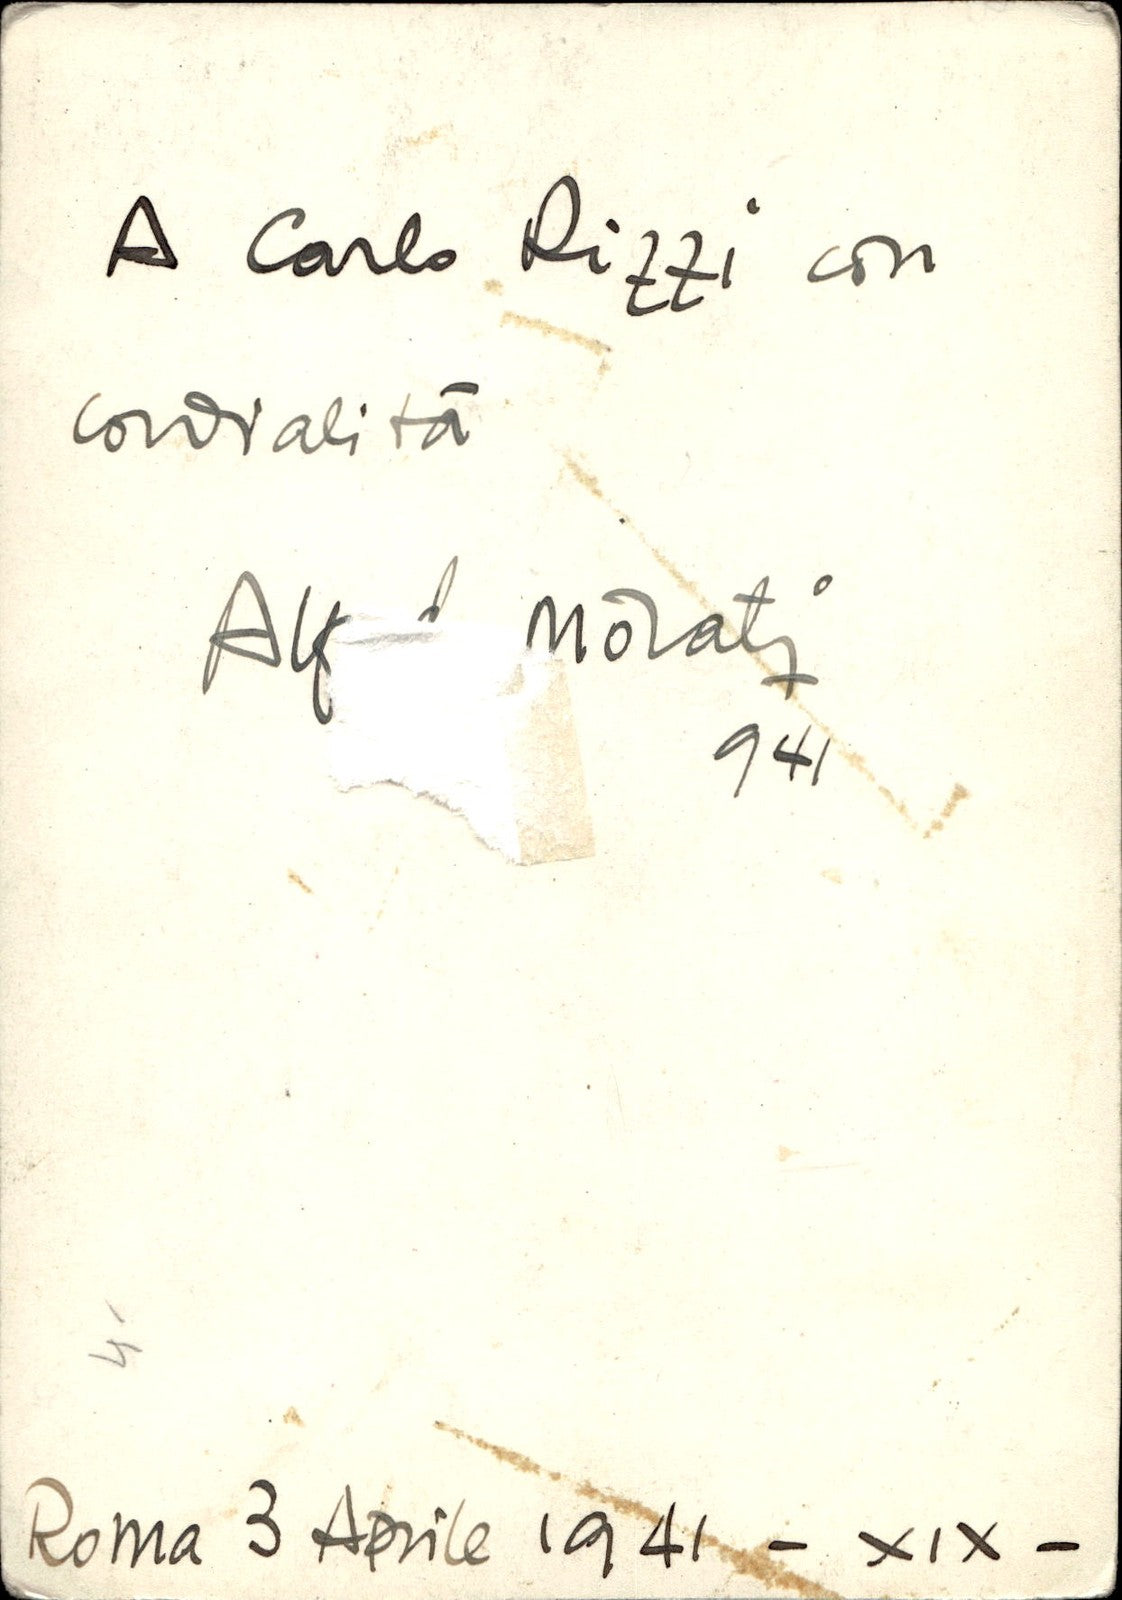 A Carlo Rizzi con
cordialità
Morati
941
Roma 3 Aprile 1941 - XIX -